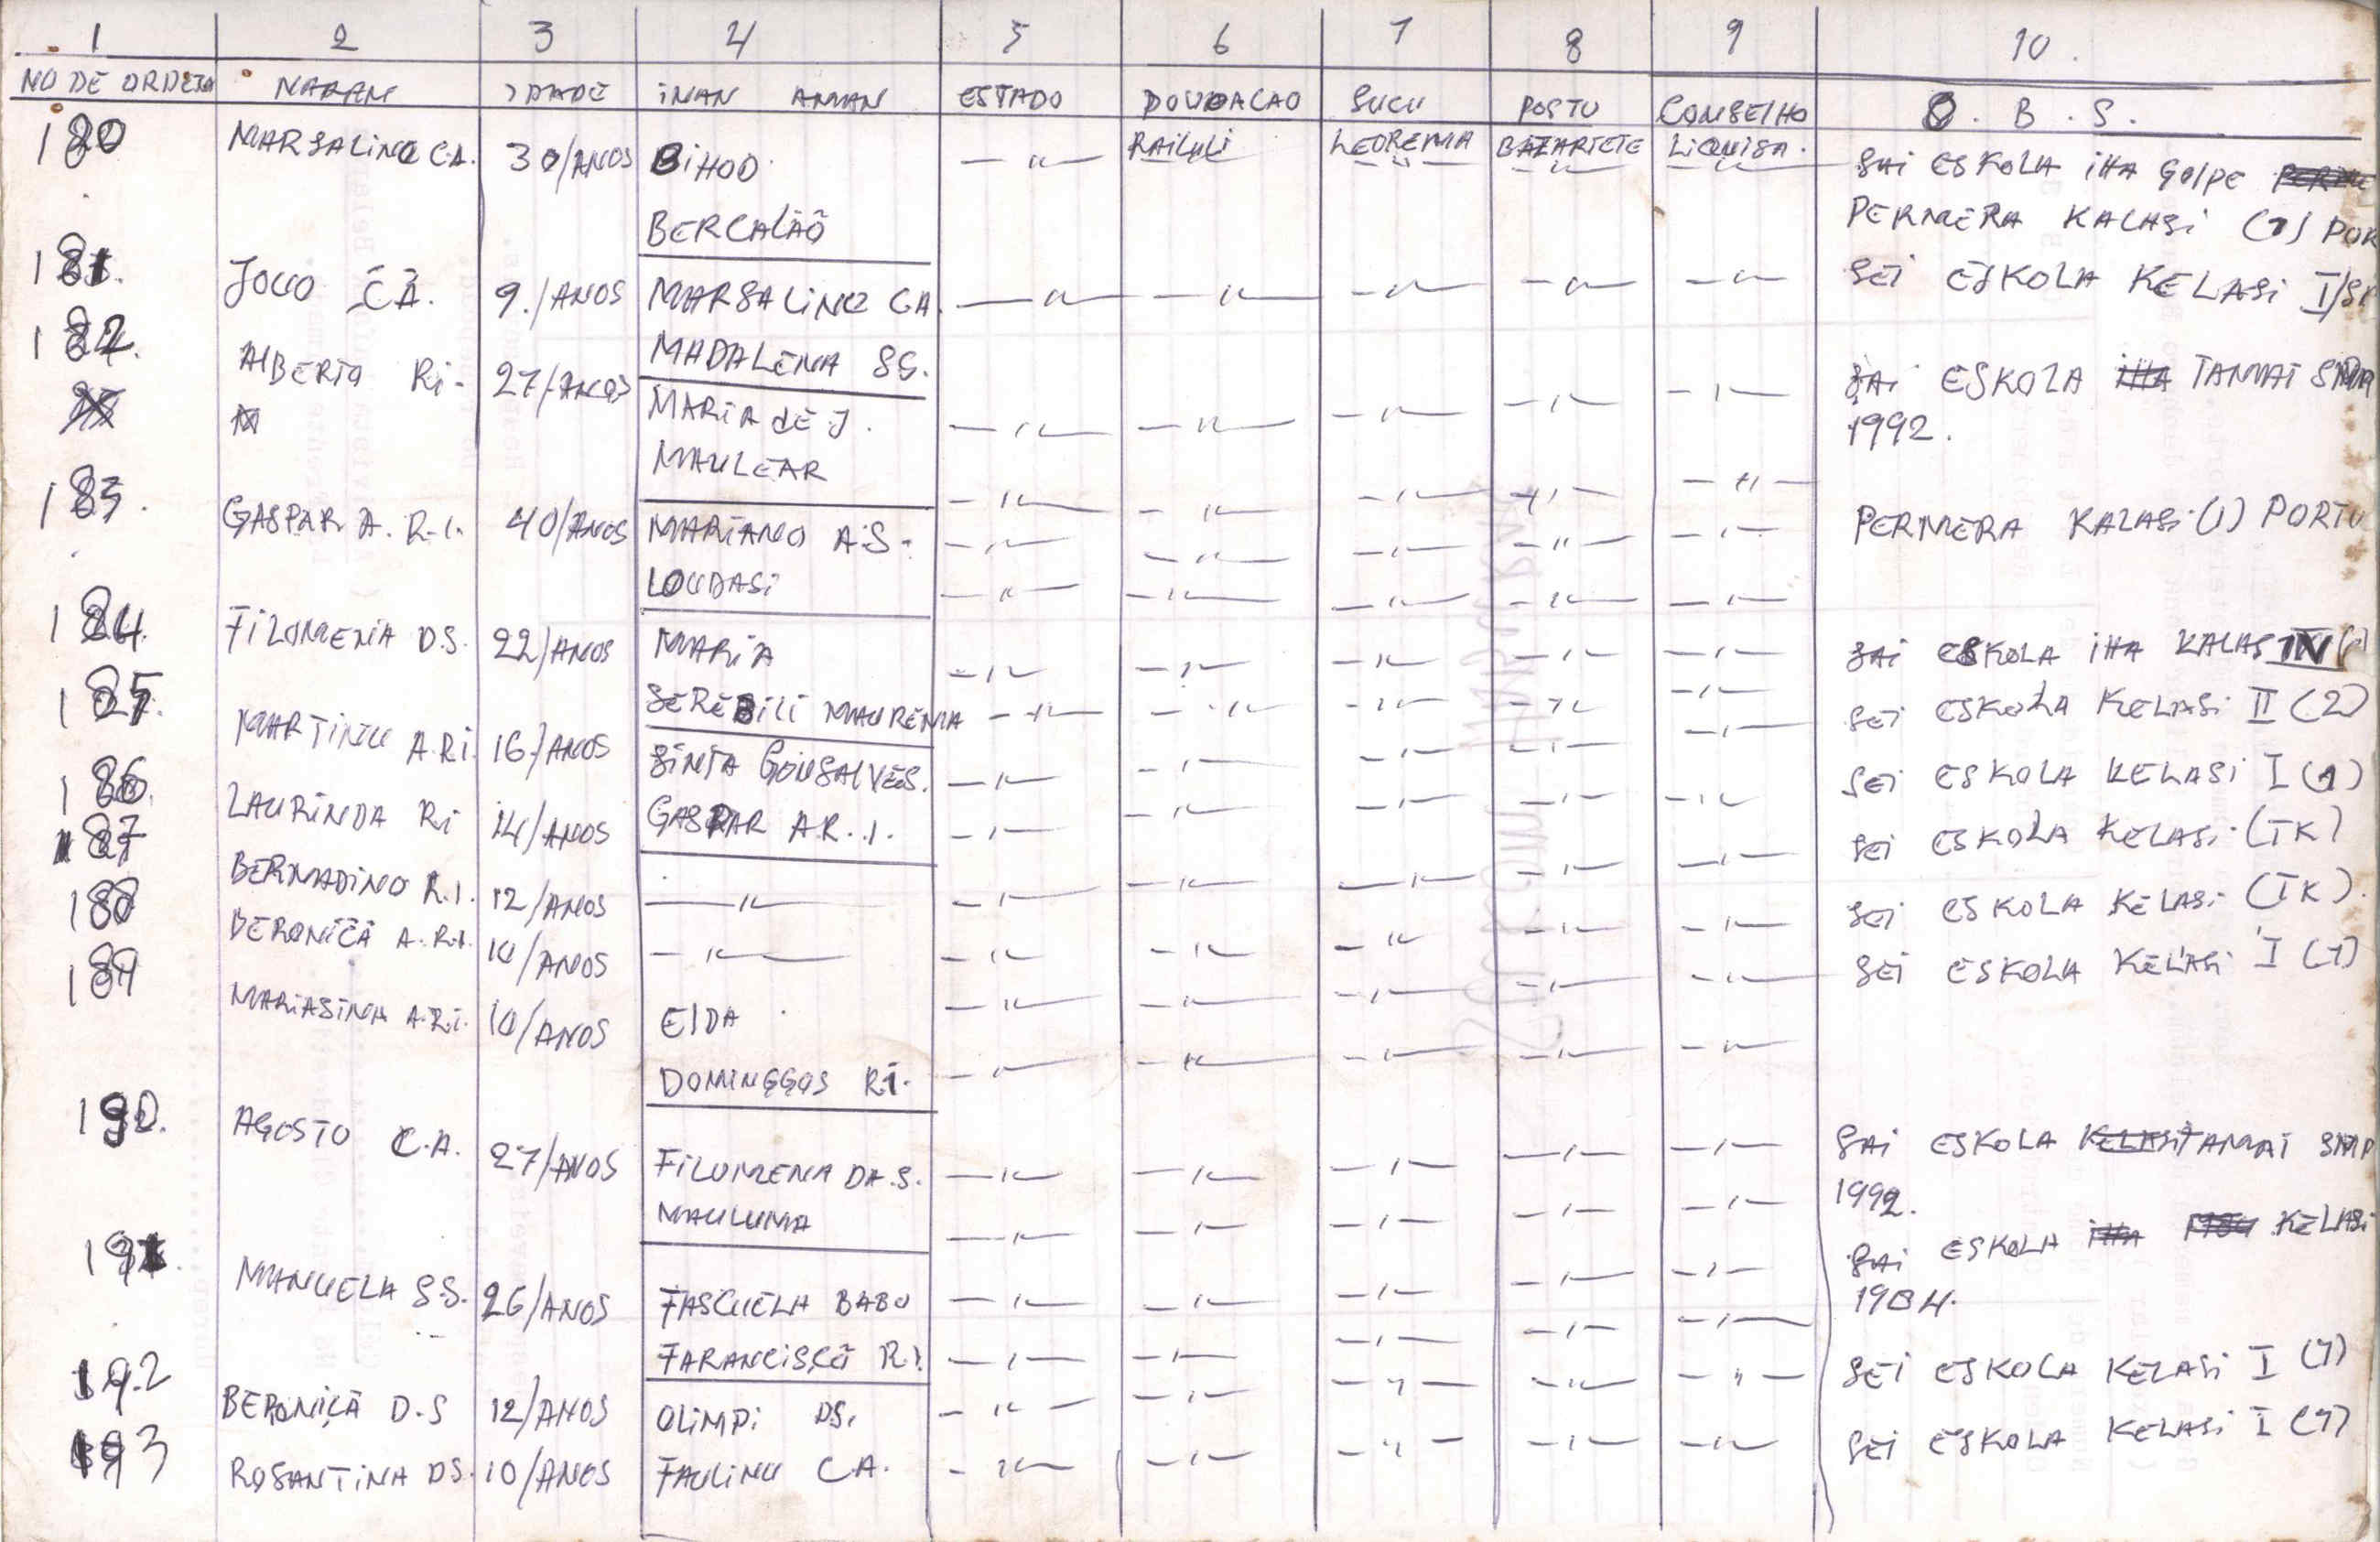 1 2 3 4 5 6 7 8 9 10.
NO DE ORDEM NARAN IDADE INAN AMAN ESTADO POVOACAO SUCU POSTU CONSELHO O. B. S.
180 MARSALINO C.A. 30/ANOS BIHOD - " - RAILULI LEOREMA BAZARTETE LIQUISA. SAI ESKOLA IHA GOLPE
BERCALÃO PERMERA KALASI (1)
181. JOCO C.A. 9./ANOS MARSALINO CA. - " - - " - - " - - " - - " - SEI ESKOLA KELASI I/
MADALENA SS.
182. ALBERTO Ri- 27/ANOS MARIA DE J. - " - - " - - " - - " - - " - SAI ESKOLA TAMAT SMA
MAULEAR 1992.
183. GASPAR A. R.I. 40/ANOS MARIANO A.S. - " - - " - - " - - " - - " - PERMERA KALASI (1) PORTU
LOUDASI - " - - " - - " - - " - - " -
184. FILOMENA D.S. 22/ANOS MARIA - " - - " - - " - - " - - " - SAI ESKOLA IHA KALAS IV
SEREBILI MAUREMA - " - - " - - " - - " - - " -
185. MARTINU A.RI. 16/ANOS SINTA GONSALVES. - " - - " - - " - - " - - " - SEI ESKOLA KELASI II (2)
186. LAURINDA RI 14/ANOS GASPAR A.R.I. - " - - " - - " - - " - - " - SEI ESKOLA KELASI I (1)
187 BERNADINO R.I. 12/ANOS - " - - " - - " - - " - - " - - " - SEI ESKOLA KELASI (TK)
188 BERONICA A.R.I. 10/ANOS - " - - " - - " - - " - - " - - " - SEI ESKOLA KELASI (TK).
189 MARIASINA A.R.I. 10/ANOS ELDA - " - - " - - " - - " - - " - SEI ESKOLA KELASI I (1)
DOMINGGOS R.I. - " - - " - - " - - " - - " -
190. AGOSTO C.A. 27/ANOS FILOMENA DA.S. - " - - " - - " - - " - - " - SAI ESKOLA TAMAT SMP
MAULUMA - " - - " - - " - - " - - " - 1992.
191. MANUELA S.S. 26/ANOS FASCUELA BABO - " - - " - - " - - " - - " - SAI ESKOLA KELASI
FARANCISCO R.I. - " - - " - - " - - " - - " - 1984.
192 BERONICA D.S 12/ANOS OLIMPI DS. - " - - " - - " - - " - - " - SEI ESKOLA KELASI I (1)
193 ROSANTINA DS. 10/ANOS PAULINU C.A. - " - - " - - " - - " - - " - SEI ESKOLA KELASI I (1)